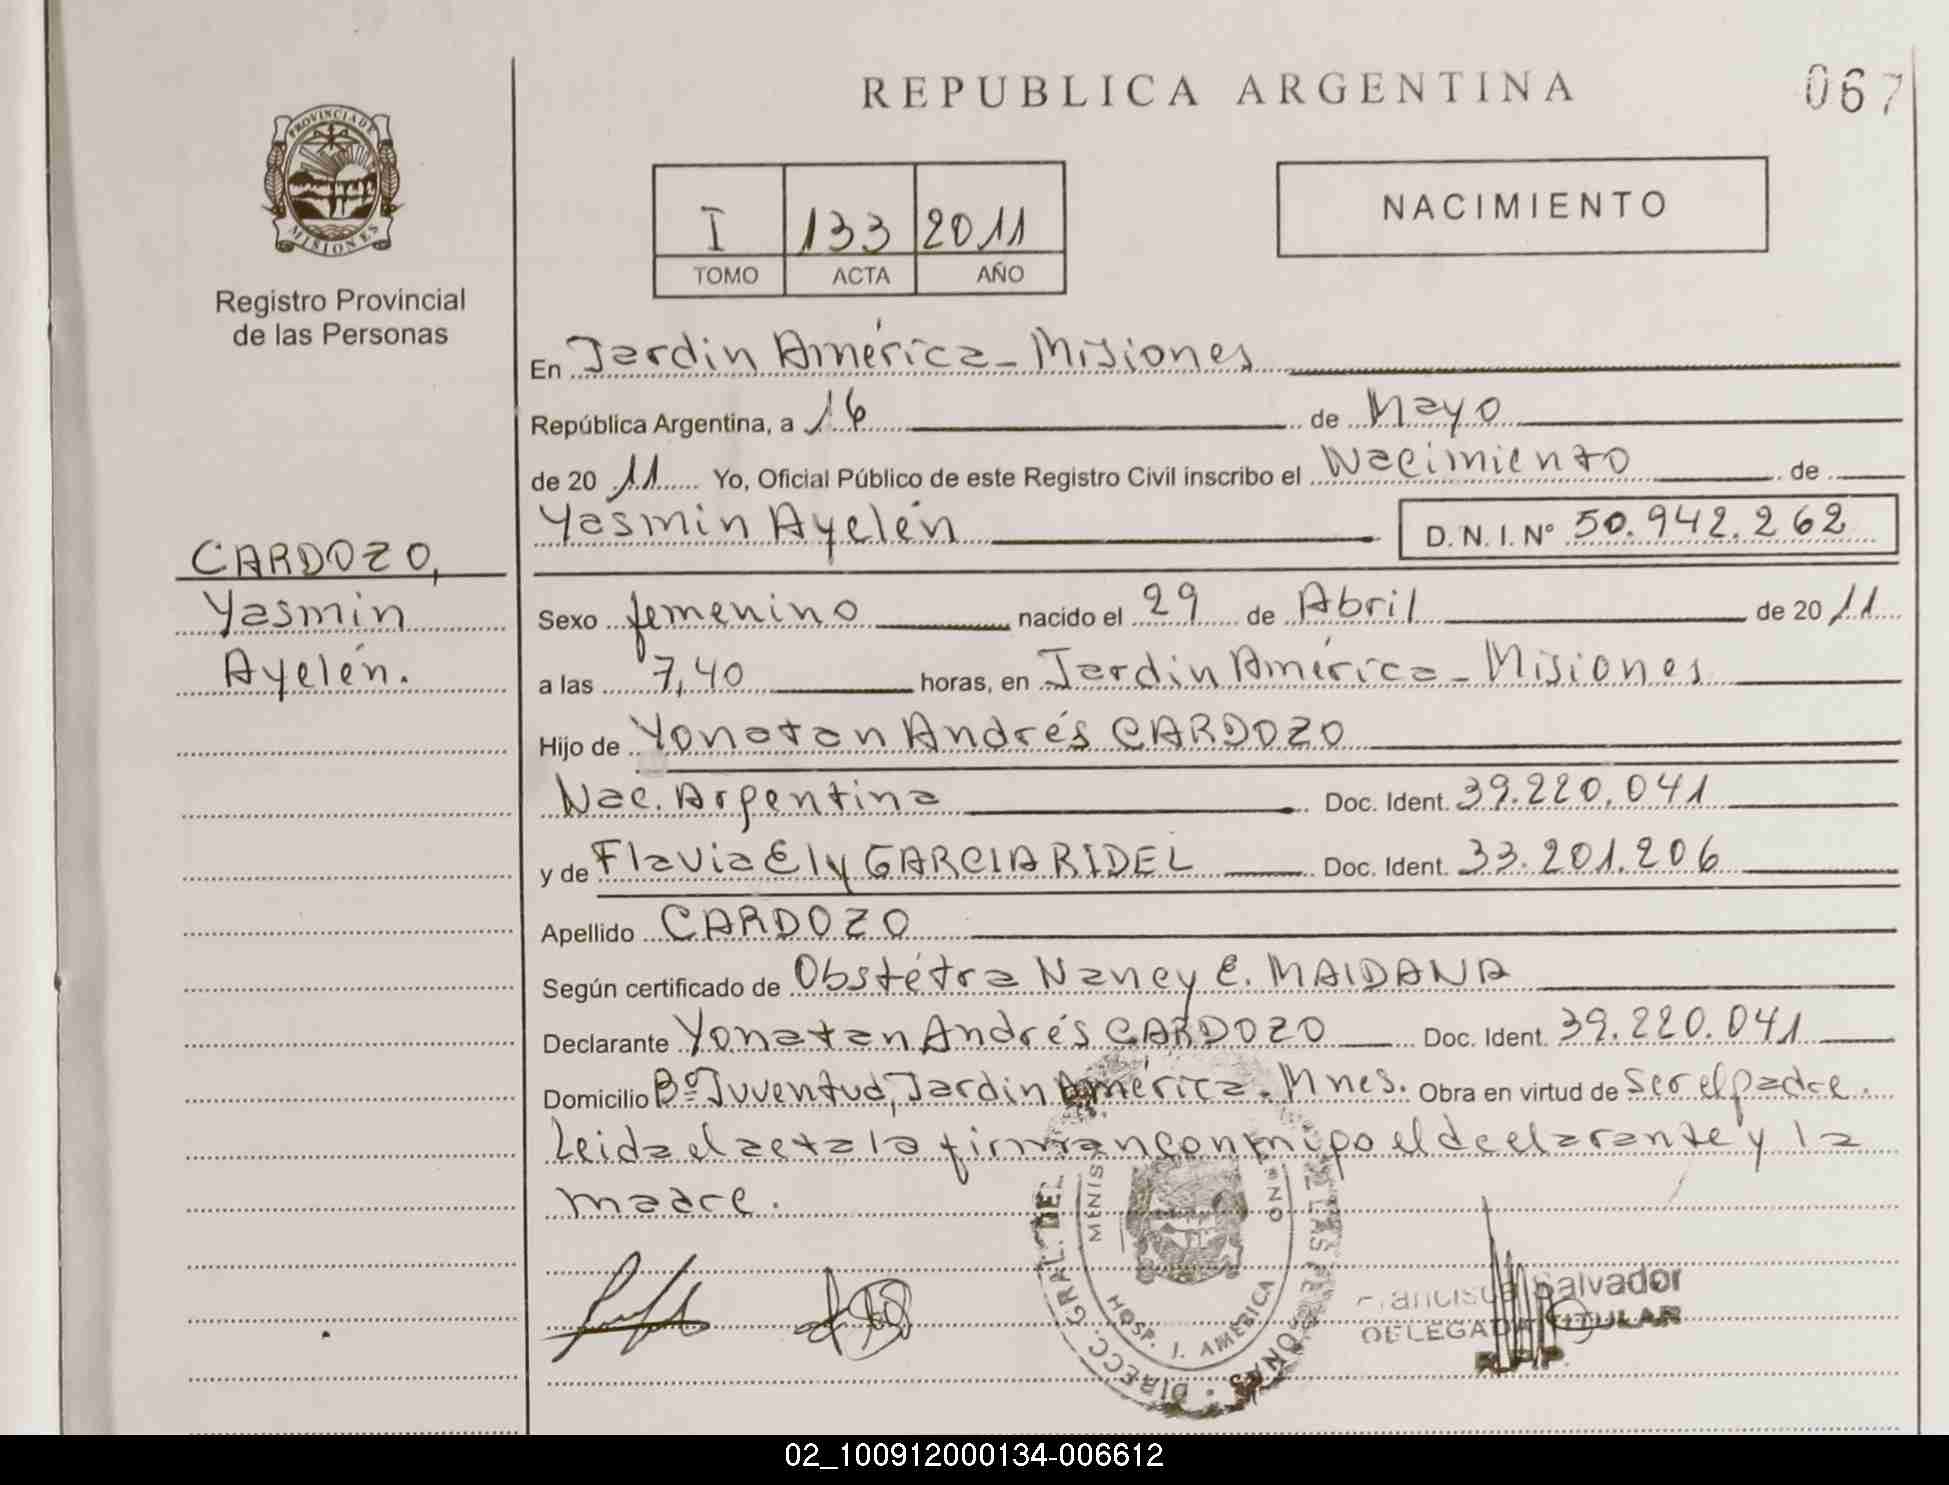 REPUBLICA ARGENTINA
067
PROVINCIA DE
MISIONES
Registro Provincial
de las Personas
I 133 2011
TOMO ACTA AÑO
NACIMIENTO
En Jardin América - Misiones
República Argentina, a 16 de Mayo
de 20 11 Yo, Oficial Público de este Registro Civil inscribo el Nacimiento de
Yasmin Ayelén
D.N.I. Nº 50.942.262
CARDOZO,
Yasmin
Ayelén.
Sexo femenino nacido el 29 de Abril de 20 11
a las 7,40 horas, en Jardin América - Misiones
Hijo de Yonatan Andrés CARDOZO
Nac. Argentina Doc. Ident. 39.220.041
y de Flavia Ely GARCIA RIDEL Doc. Ident. 33.201.206
Apellido CARDOZO
Según certificado de Obstétra Nancy E. MAIDANA
Declarante Yonatan Andrés CARDOZO Doc. Ident. 39.220.041
Domicilio Bº Juventud, Jardin América. Mnes. Obra en virtud de ser el padre.
Leida el acta la firman conmigo el declarante y la
madre.
DIRECC. GRAL. DEL
HOSP. J. AMERICA
Salvador
DELEGADA TITULAR
R.P.P.
02_100912000134-006612